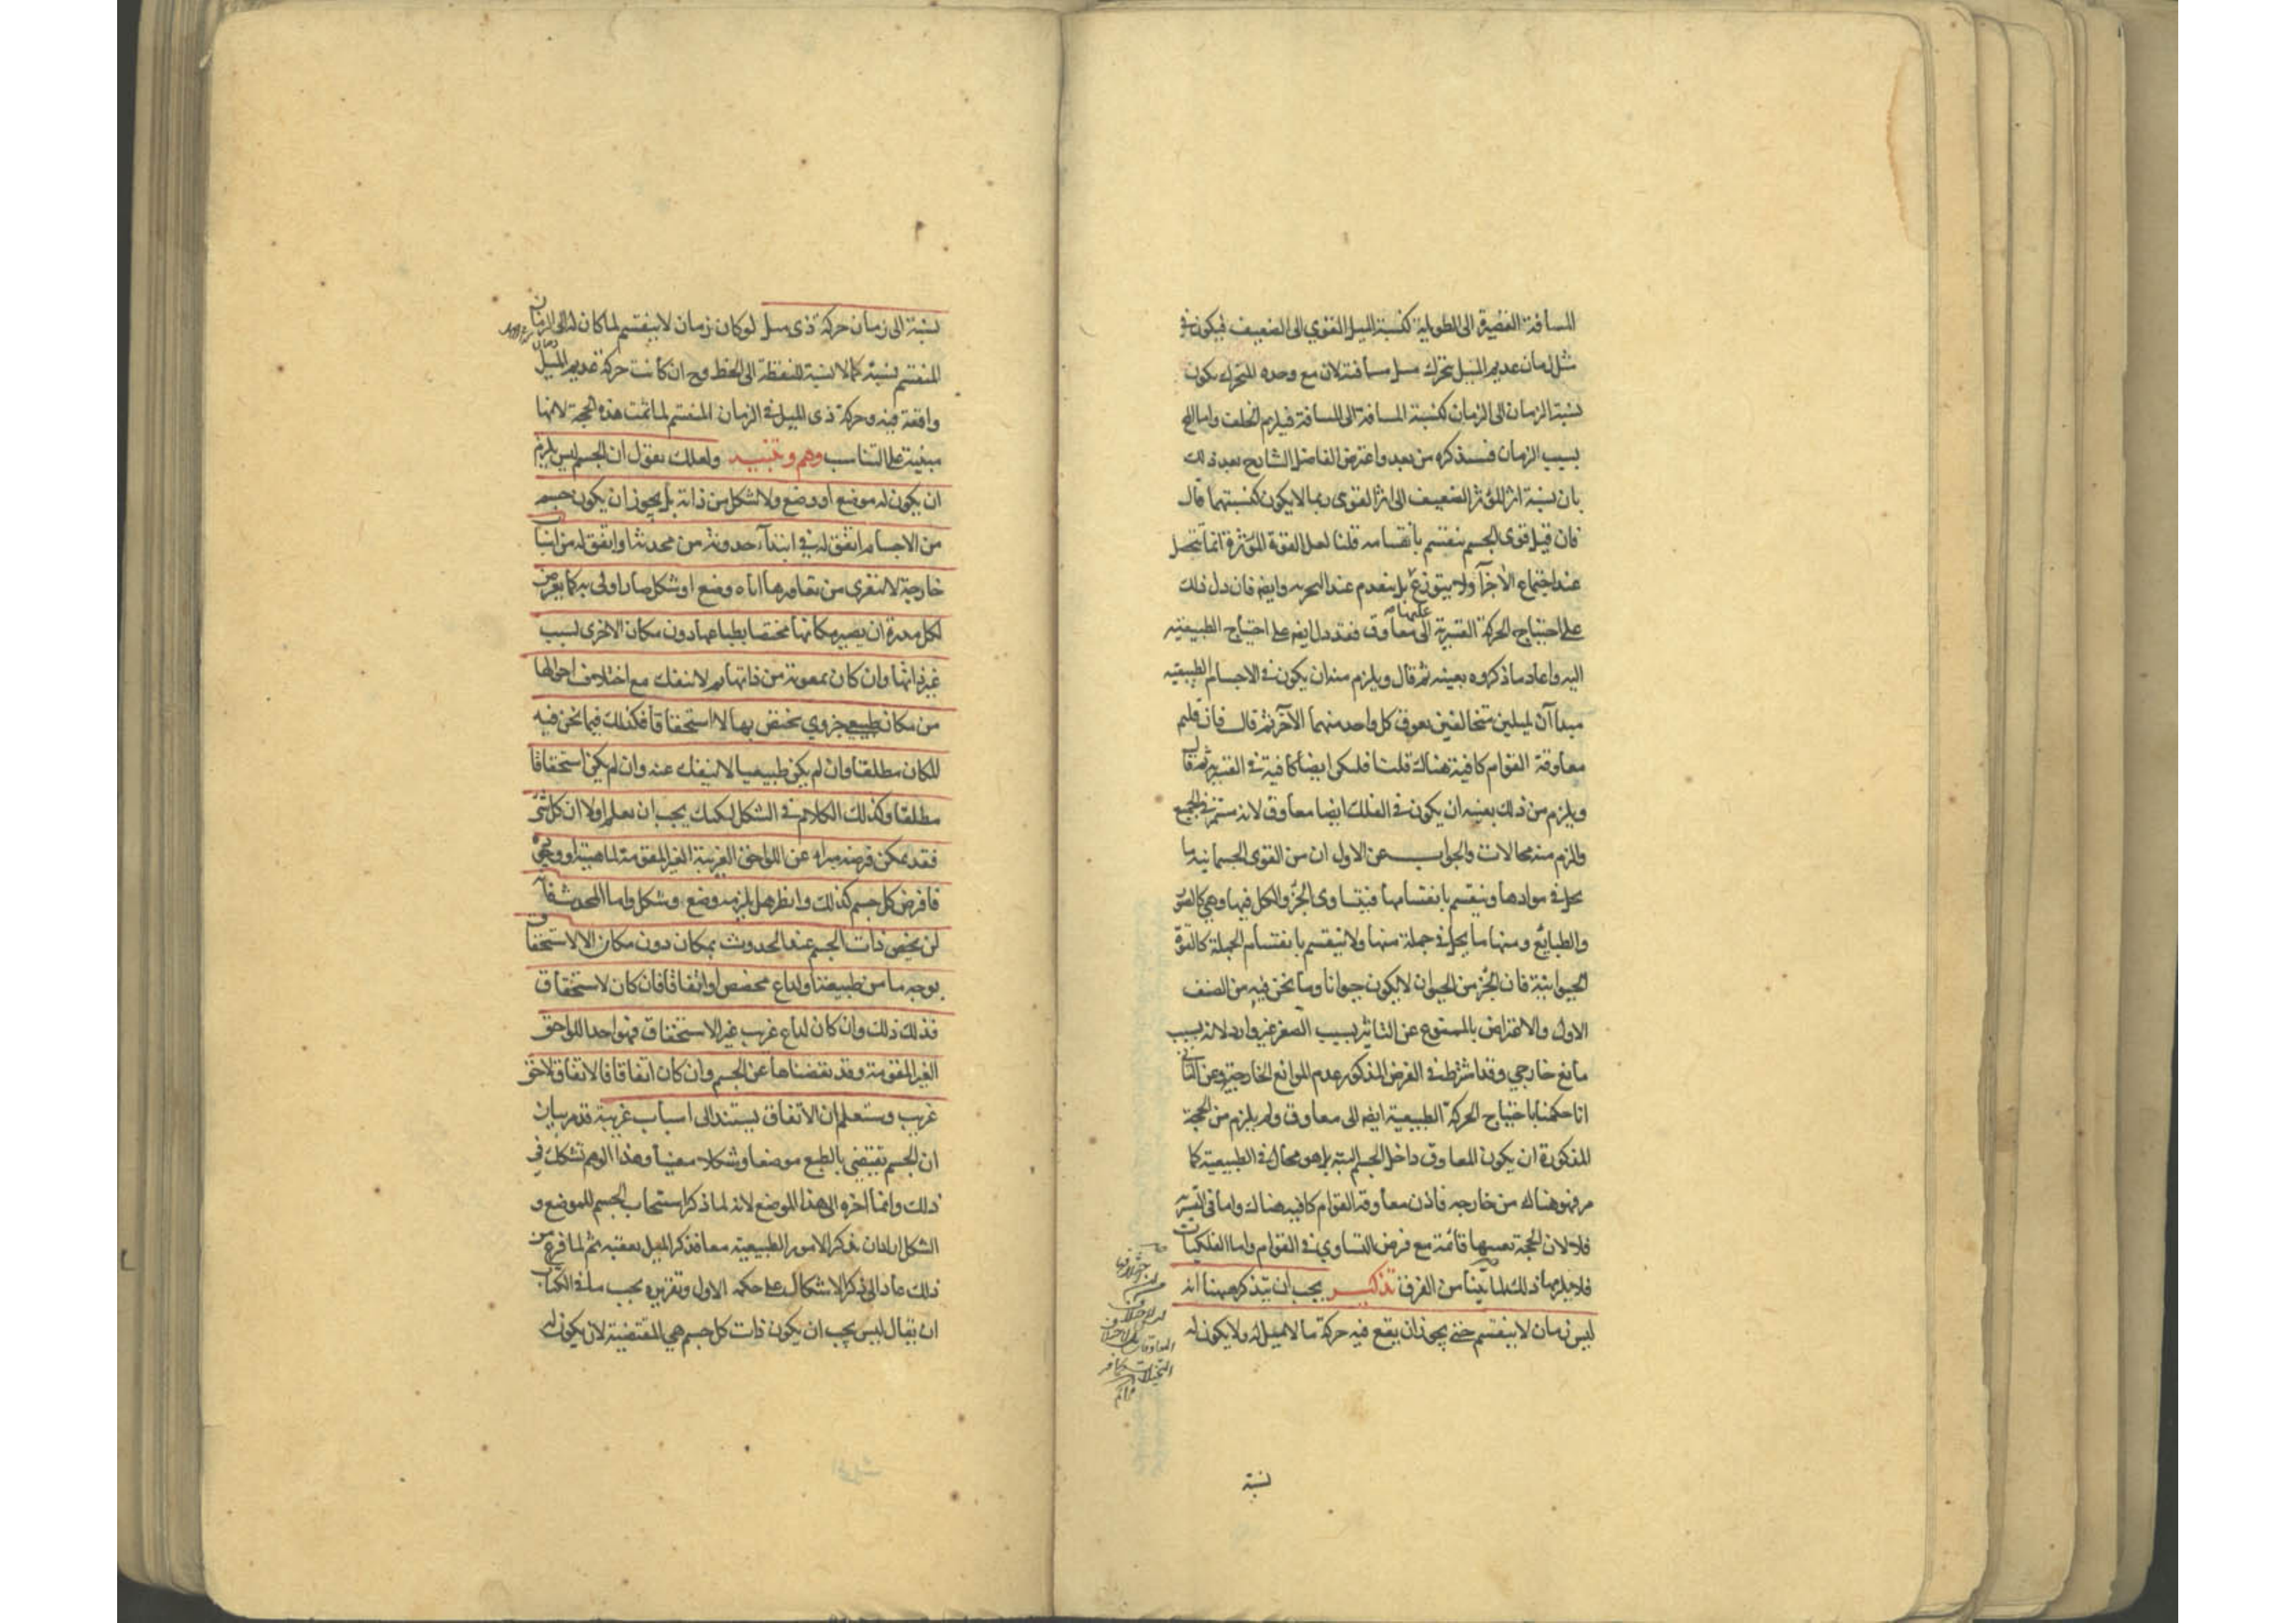 المسافة القصيرة الى الطويلة كنسبة الميل القوي الى الضعيف فيكون في
مثل زمان عديم الميل يتحرك مثل مسافته لان مع وحده المتحرك يكون
نسبة الزمان الى الزمان كنسبة المسافة الى المسافة فيلزم الخلف واما الخ
بسبب الزمان فسنذكره من بعد واعترض الفاضل الشارح بعد ذلك
بان نسبة اثر المؤثر الضعيف الى اثر القوى ربما لا يكون كنسبتهما قال
فان قيل قوى الجسم ينقسم بانقسامه قلنا لعل القوة المؤثرة انما يتحصل
عند اجتماع الاجزاء ولا يتوزع بل ينعدم عند التجزيه وايضا فان دل ذلك
على احتياج الحركة القسرية الى معاوق فقد دل ايضا على احتياج الطبيعيه
اليه واعاد ما ذكروه بعينه ثم قال ويلزم منه ان يكون في الاجسام الطبيعيه
مبدا آن لميلين متخالفين يعوق كل واحد منهما الآخر ثم قال فان قلتم
معاوقة القوام كافية هناك قلنا فلتكن ايضا كافية في القسرية ثم قال
ويلزم من ذلك بعينه ان يكون في الفلك ايضا معاوق لانه مستمر في الجميع
والزم منه محالات والجواب عن الاول ان من القوى الجسمانيه ما
يحل في موادها وينقسم بانقسامها فيتساوى الجزء والكل فيها وهي كالصور
والطبايع ومنها ما يحل في جملة منها ولا ينقسم بانقسام الجملة كالقوة
الحيوانية فان الجزء من الحيوان لا يكون حيوانا وما نحن فيه من الصنف
الاول والاعتراض بالممنوع عن التاثير بسبب الصغر غير وارد لانه بسبب
مانع خارجي وقد اشترط في الفرض المذكور عدم الموانع الخارجية وعن الثاني
انا حكمنا باحتياج الحركة الطبيعية ايضا الى معاوق ولم يلزم من الحجة
المذكورة ان يكون المعاوق داخل الجسم البتة بل هو محال في الطبيعية كما
مر فهو هناك من خارجه فاذن معاوقة القوام كافية هناك واما في القسرية
فلا لان الحجة بعينها قائمة مع فرض التساوي في القوام واما الفلكيات
فلا يلزمها ذلك لما بينا من الفرق تذكير يجب ان تتذكر ههنا انه
ليس زمان لا ينقسم حتى يجوز ان يقع فيه حركة ما لا ميل له ولا يكون له
نسبة
نسبة الى زمان حركة ذى ميل لو كان زمان لا ينقسم لما كان له الى الزمان
المنقسم نسبة كما لا نسبة للنقطة الى الخط وح ان كانت حركة عديم الميل
واقعة فيه وحركة ذى الميل في الزمان المنقسم لما تمت هذه الحجة لانها
مبنية على التناسب وهم وتنبيه ولعلك تقول ان الجسم ليس يلزم
ان يكون له موضع او وضع ولا شكل من ذاته بل يجوز ان يكون جسم
من الاجسام اتفق له في ابتداء حدوثه من محدثه او اتفق له من اسباب
خارجة لا تتعرى من تعاورها اياه وضع او شكل صار اولى به كما يعرض
لكل مدرة ان يصير مكانها مختصا بطباعها دون مكان الاخرى بسبب
غير ذاتها وان كان بمعونة من ذاتها ثم لا تنفك مع اختلاف احوالها
من مكان طبيعي جزوي يختص بها لا استحقاقا فكذلك فيما نحن فيه
المكان مطلقا وان لم يكن طبيعيا لا ينفك عنه وان لم يكن استحقاقا
مطلقا وكذلك الكلام في الشكل لكنك يجب ان تعلم اولا ان كل شئ
فقد يمكن فرضه مبراء عن اللواحق الغريبة الغير المقومة لماهيته او وجوده
فافرض كل جسم كذلك وانظر هل يلزمه وضع وشكل واما المحدث فانه
لن يخص ذات الجسم عند الحدوث بمكان دون مكان الا لاستحقاق
بوجه ما من طبيعته او لداع مخصص او اتفاقا فان كان لاستحقاق
فذلك ذلك وان كان لداع غريب غير الاستحقاق فهو احد اللواحق
الغير المقومة وقد نفضناها عن الجسم وان كان اتفاقا فالاتفاق لاحق
غريب وستعلم ان الاتفاق يستند الى اسباب غريبة قد مر بيان
ان الجسم يقتضي بالطبع موضعا وشكلا معينا وهذا الوهم تشكك في
ذلك وانما اخره الى هذا الموضع لانه لما ذكر استيجاب الجسم للموضع و
الشكل اراد ان يذكر الامور الطبيعية معا فذكر الميل بعقبه ثم لما فرغ من
ذلك عاد الى ذكر الاشكال على حكمه الاول وتقريره بحسب ما في الكتاب
ان يقال ليس يجب ان يكون ذات كل جسم هي المقتضية لان يكون له